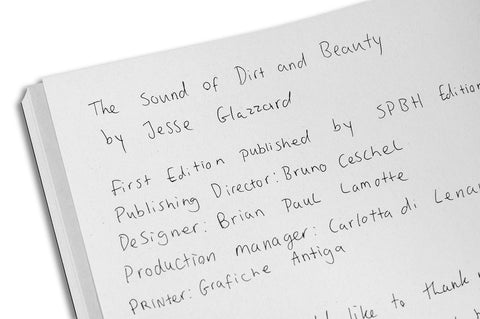 The Sound of Dirt and Beauty
by Jesse Glazzard
First Edition published by SPBH Edition
Publishing Director: Bruno Ceschel
Designer: Brian Paul Lamotte
Production manager: Carlotta di Lena
Printer: Grafiche Antiga
like to thank